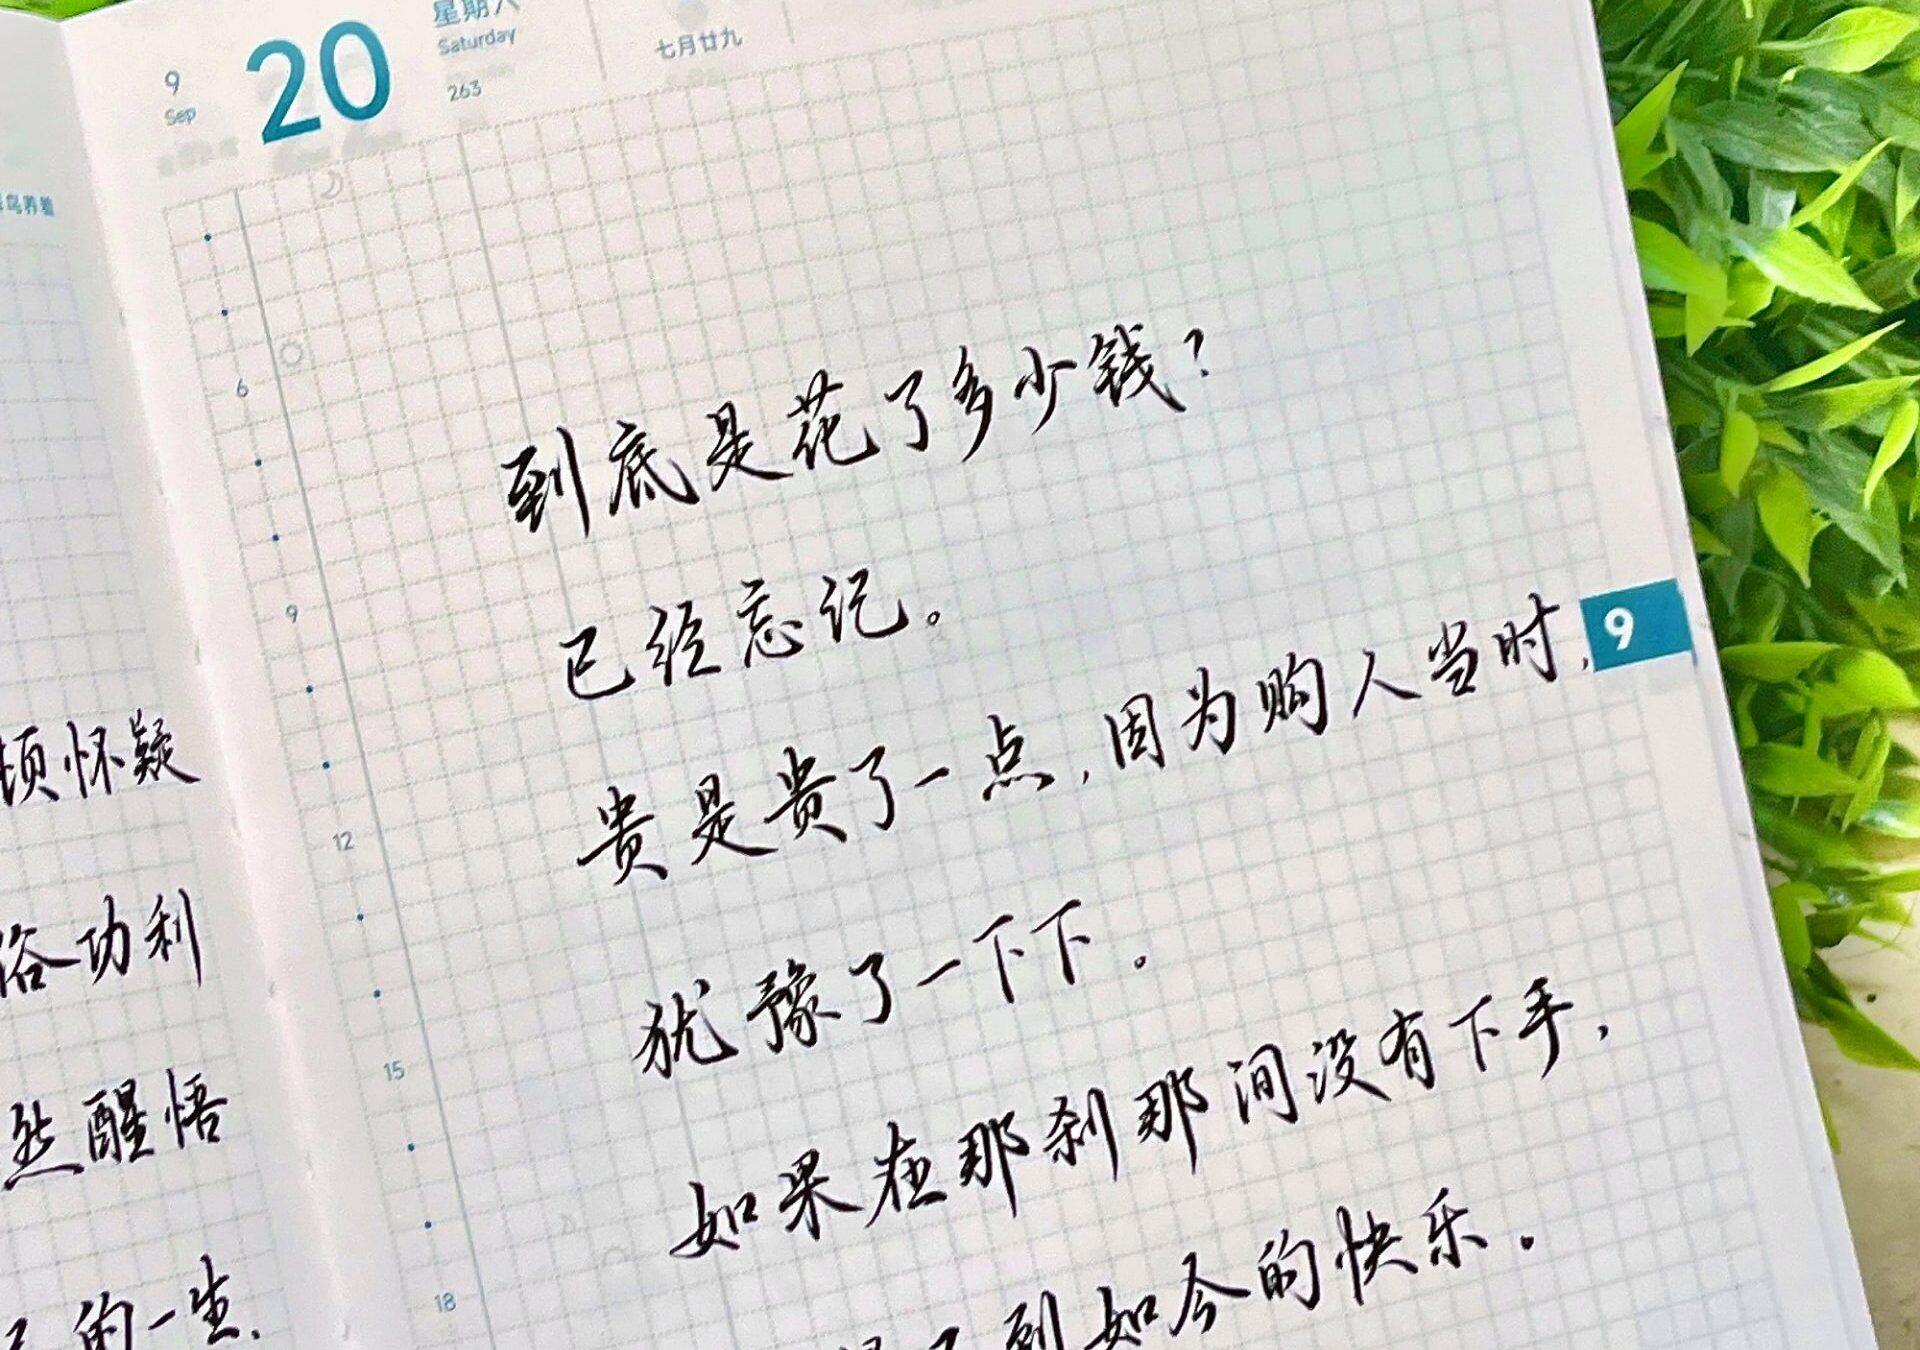 9
Sep
20
星期六
Saturday
263
七月廿九
6
9
12
15
18
9
到底是花了多少钱?
已经忘记。
贵是贵了一点,因为购人当时,
犹豫了一下下。
如果在那刹那间没有下手,
到如今的快乐.
鸟养着
顿怀疑
俗功利
然醒悟
的一生.